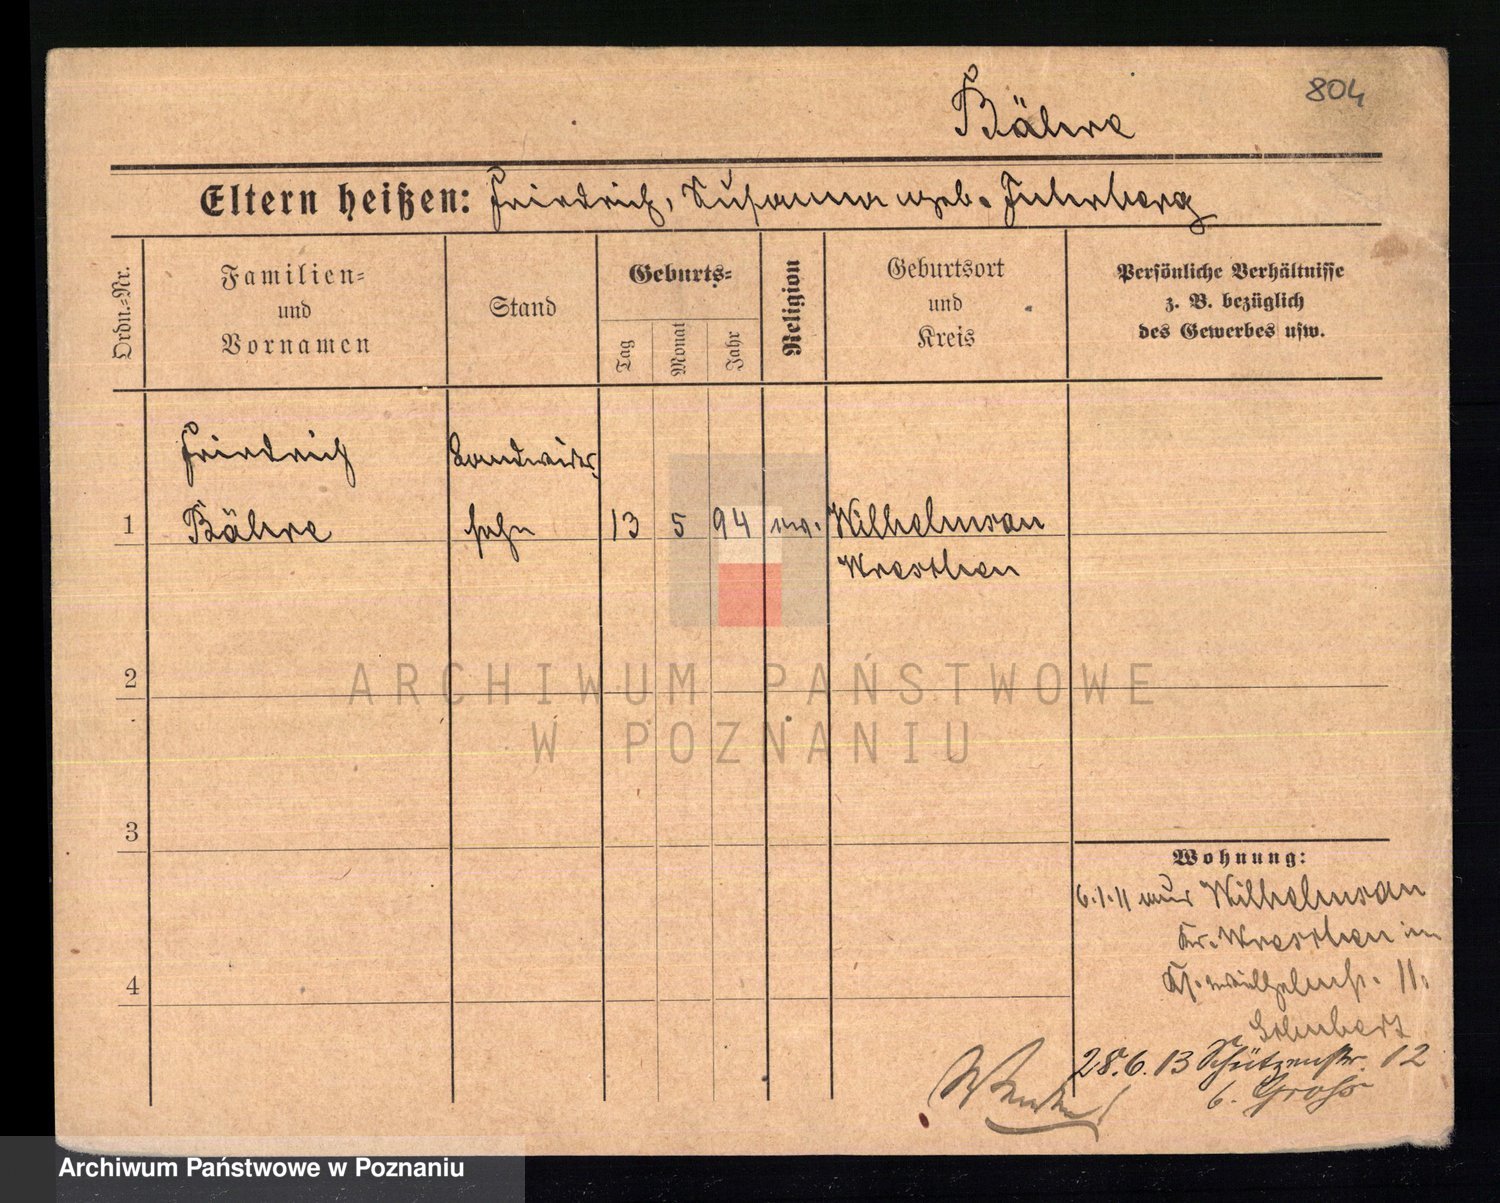 804
Bähre
Eltern heißen: Friedrich, Susanna geb. Fuhrberg
Ordn.-Nr.
Familien-
und
Vornamen
Stand
Geburts-
Tag
Monat
Jahr
Religion
Geburtsort
und
Kreis
Persönliche Verhältnisse
z. B. bezüglich
des Gewerbes usw.
Friedrich Landwirts
1 Bähre sohn 13 5 94 ev. Wilhelmsau
Wreschen
2
3
4
Wohnung:
6.1.11 aus Wilhelmsau
Kr. Wreschen in
Schubert
28.6.13 Schützenstr. 12
b. Gross
ARCHIWUM PAŃSTWOWE
W POZNANIU
Archiwum Państwowe w Poznaniu